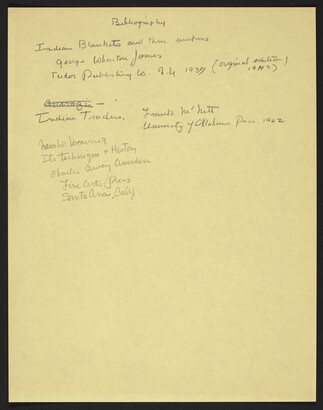 Bibliography
Indian Blankets and their makers
George Wharton James
Tudor Publishing Co. N.Y 1937 (original edition
Indian Traders, Frank McNitt
University of Oklahoma Press 1962
Navaho Weaving
Its technique + History
Charles Avery Amsden
Fine Arts Press
Santa Ana, Calif